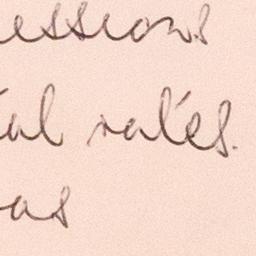 essions
tal rates.
as